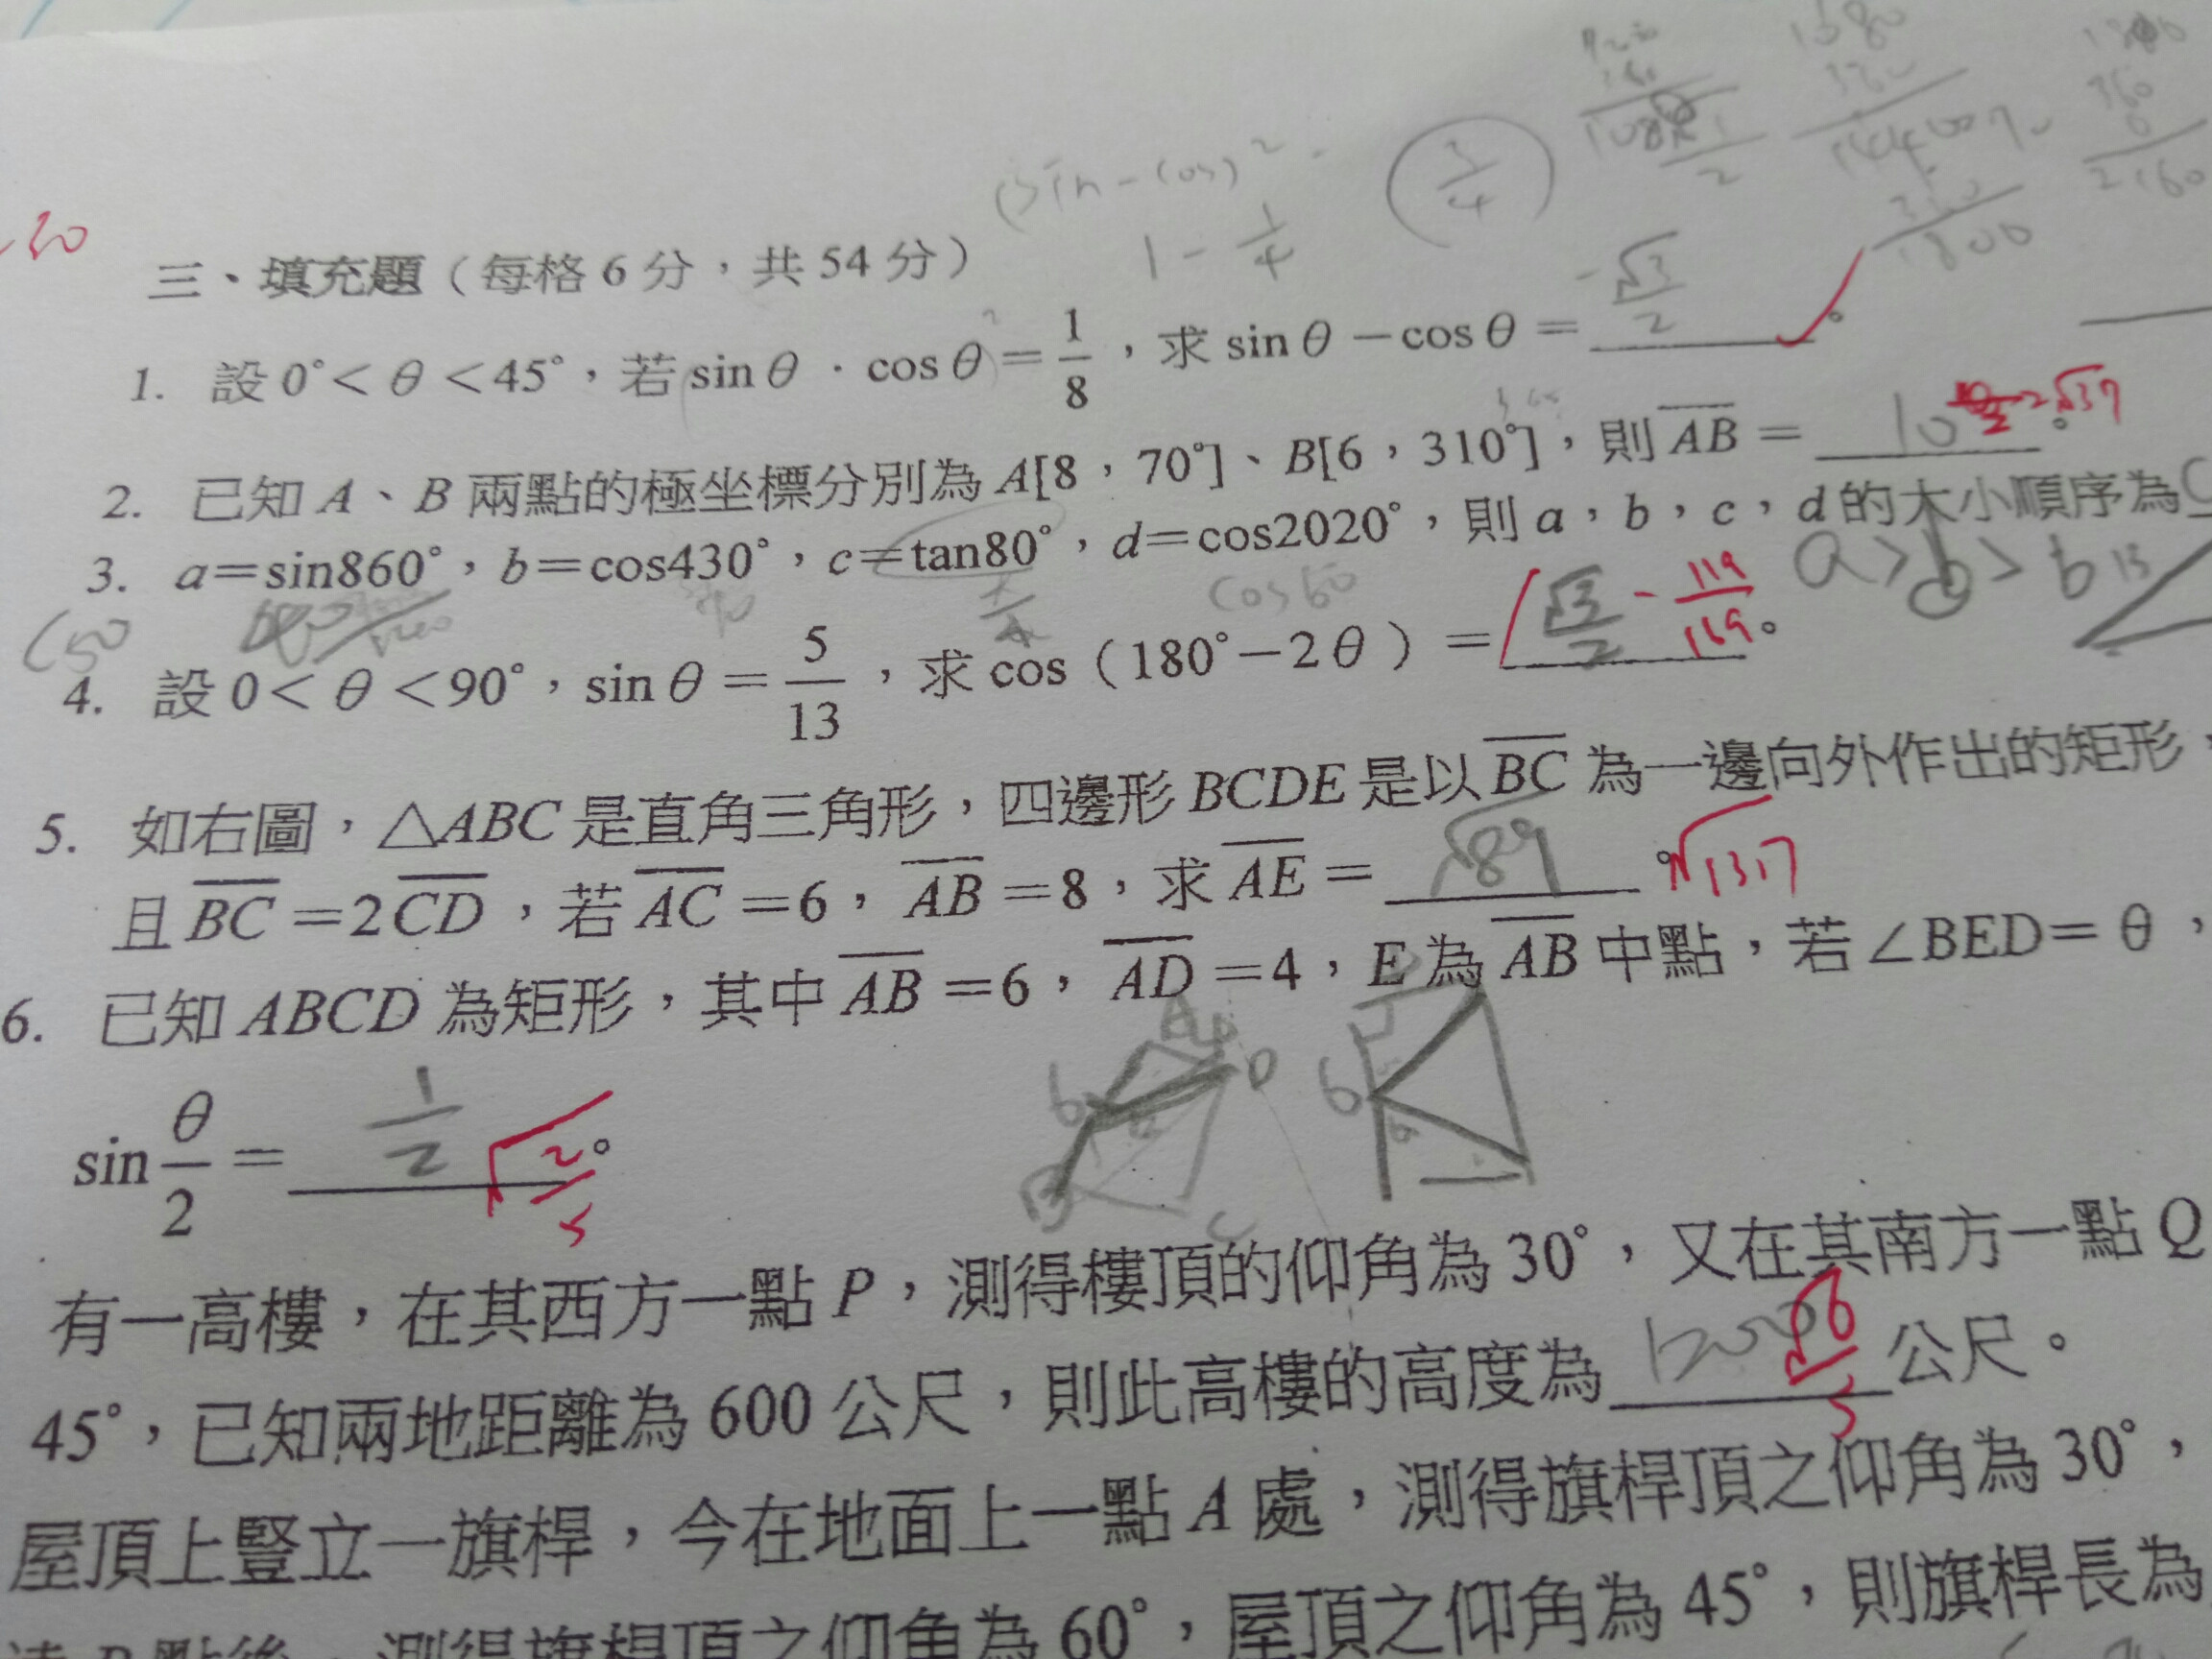 三、填充題（每格 6 分，共 54 分）
(sin-cos)²
1-1/4
3/4
1. 設 0°< θ <45°，若 sin θ · cos θ = 1/8，求 sin θ －cos θ = -√3/2 。
2. 已知 A、B 兩點的極坐標分別為 A[8，70°]、B[6，310°]，則 AB = 10 。 2√37
3. a=sin860°，b=cos430°，c=tan80°，d=cos2020°，則 a，b，c，d 的大小順序為 C
cos60
4. 設 0< θ <90°，sin θ = 5/13，求 cos（180°－2θ）= √3/2 。 -119/169
5. 如右圖，△ABC 是直角三角形，四邊形 BCDE 是以 BC 為一邊向外作出的矩形，
且 BC =2 CD，若 AC =6，AB =8，求 AE = √89 。 √137
6. 已知 ABCD 為矩形，其中 AB =6，AD =4，E 為 AB 中點，若∠BED= θ，
sin θ/2 = 1/2 。 √2/5
有一高樓，在其西方一點 P，測得樓頂的仰角為 30°，又在其南方一點 Q
45°，已知兩地距離為 600 公尺，則此高樓的高度為 公尺。
屋頂上豎立一旗桿，今在地面上一點 A 處，測得旗桿頂之仰角為 30°，
B 點後，測得旗桿頂之仰角為 60°，屋頂之仰角為 45°，則旗桿長為